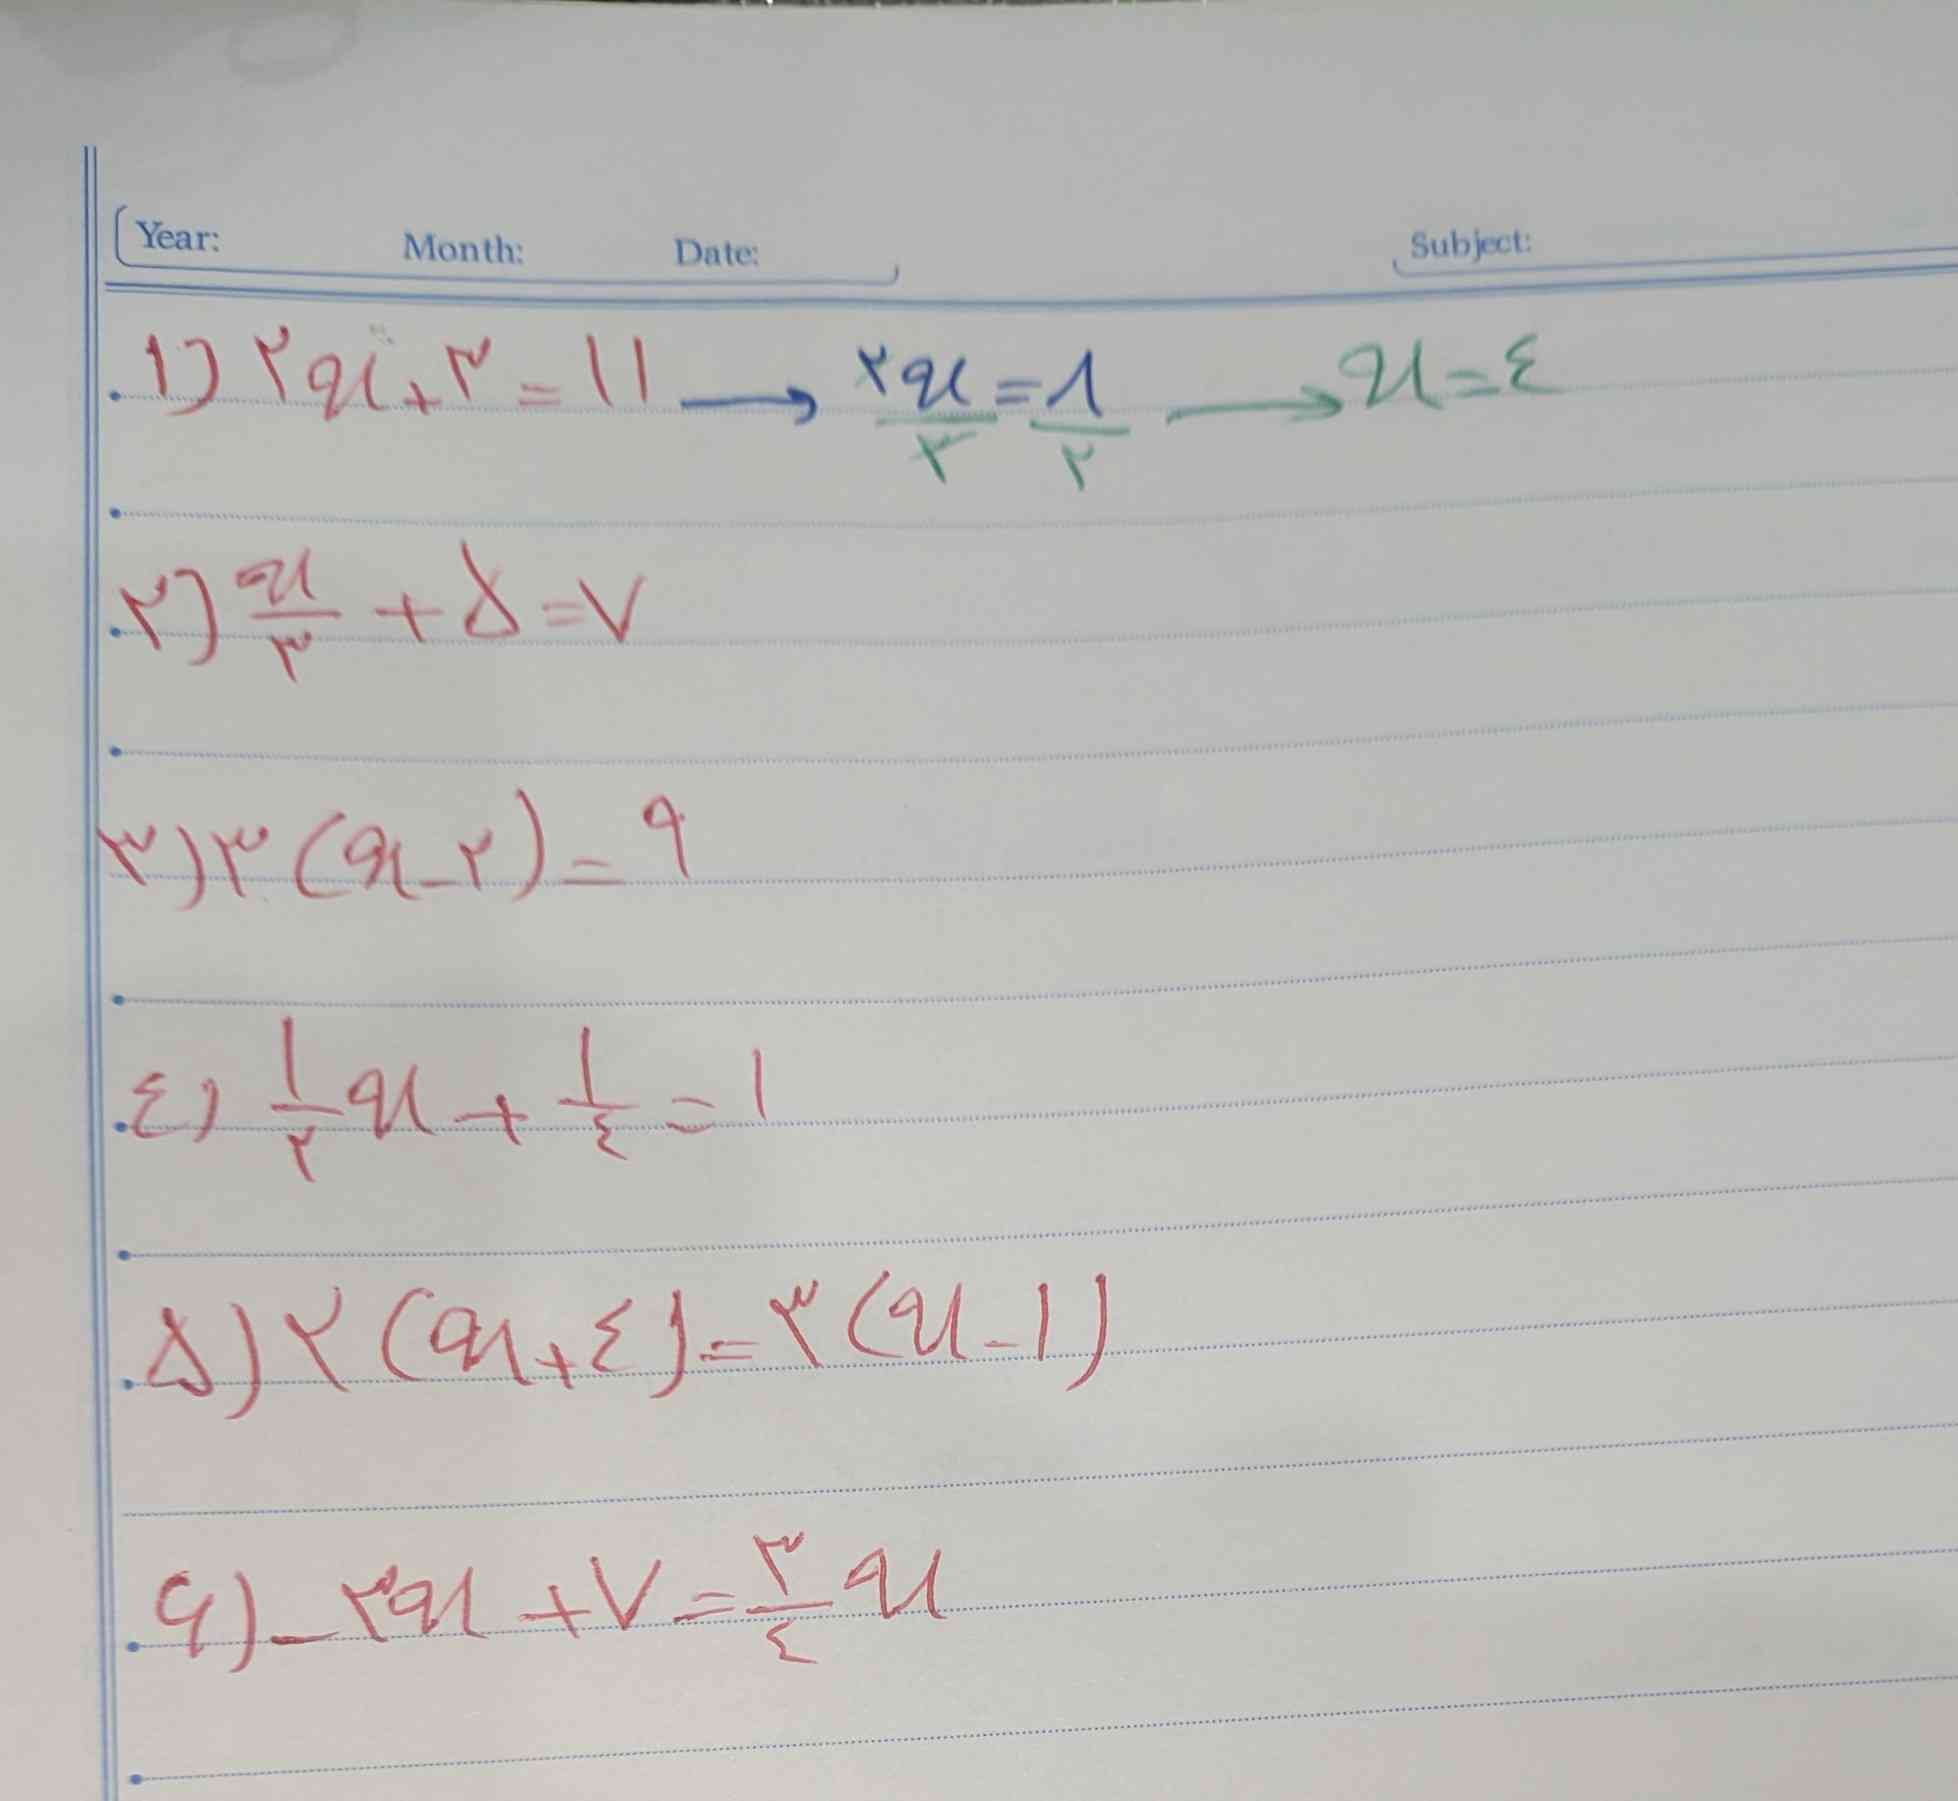 Year: Month: Date: Subject:
۱) ۲x + ۳ = ۱۱ → ۲x/۲ = ۸/۲ → x = ٤
۲) x/۳ + ۵ = ۷
۳) ۳(x - ۲) = ۹
٤) ۱/۲ x + ۱/٤ = ۱
۵) ۲(x + ٤) = ۳(x - ۱)
۶) -۳x + ۷ = ۳/٤ x